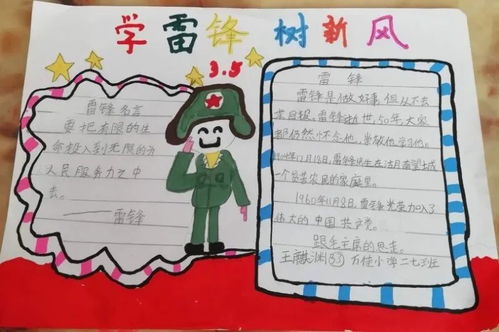 学雷锋 树新风
3.5
雷锋名言
要把有限的生
命投入到无限的为
人民服务之中
去。
——雷锋
雷锋
雷锋是做好事但从不去
50年大家
都仍然怀念他
12月18日,雷锋出生在
一个贫苦农民的家庭里。
1960年11月8日,雷锋光荣加入了
伟大的中国共产党。
跟毛主席的
王麒渊 33 万佳小学二七班